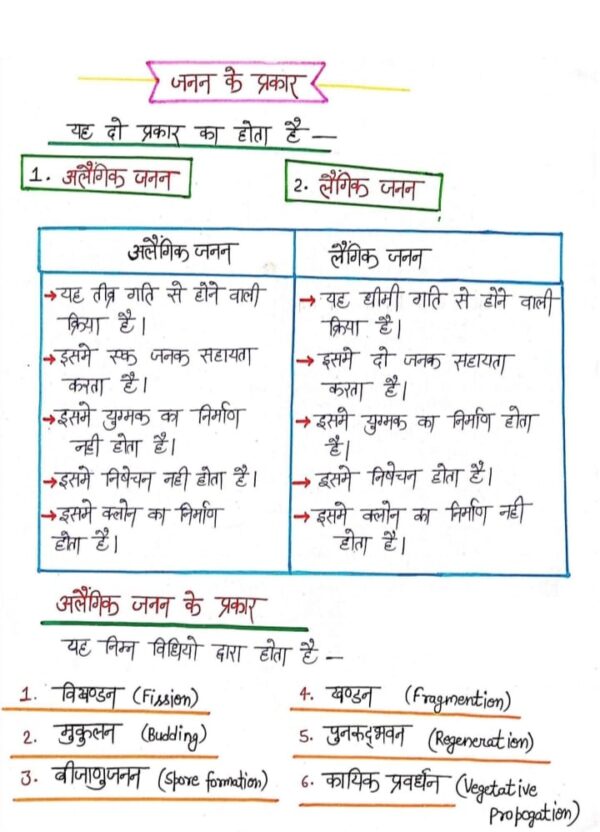 जनन के प्रकार
यह दो प्रकार का होता है —
1. अलैंगिक जनन
2. लैंगिक जनन
अलैंगिक जनन
→ यह तीव्र गति से होने वाली
क्रिया है।
→ इसमे एक जनक सहायता
करता है।
→ इसमे युग्मक का निर्माण
नही होता है।
→ इसमे निषेचन नही होता है।
→ इसमे क्लोन का निर्माण
होता है।
लैंगिक जनन
→ यह धीमी गति से होने वाली
क्रिया है।
→ इसमे दो जनक सहायता
करता है।
→ इसमे युग्मक का निर्माण होता
है।
→ इसमे निषेचन होता है।
→ इसमे क्लोन का निर्माण नही
होता है।
अलैंगिक जनन के प्रकार
यह निम्न विधियो द्वारा होता है —
1. विखण्डन (Fission)
2. मुकुलन (Budding)
3. बीजाणुजनन (Spore formation)
4. खण्डन (Fragmention)
5. पुनकद्भवन (Regeneration)
6. कायिक प्रवर्धन (Vegetative
propogation)